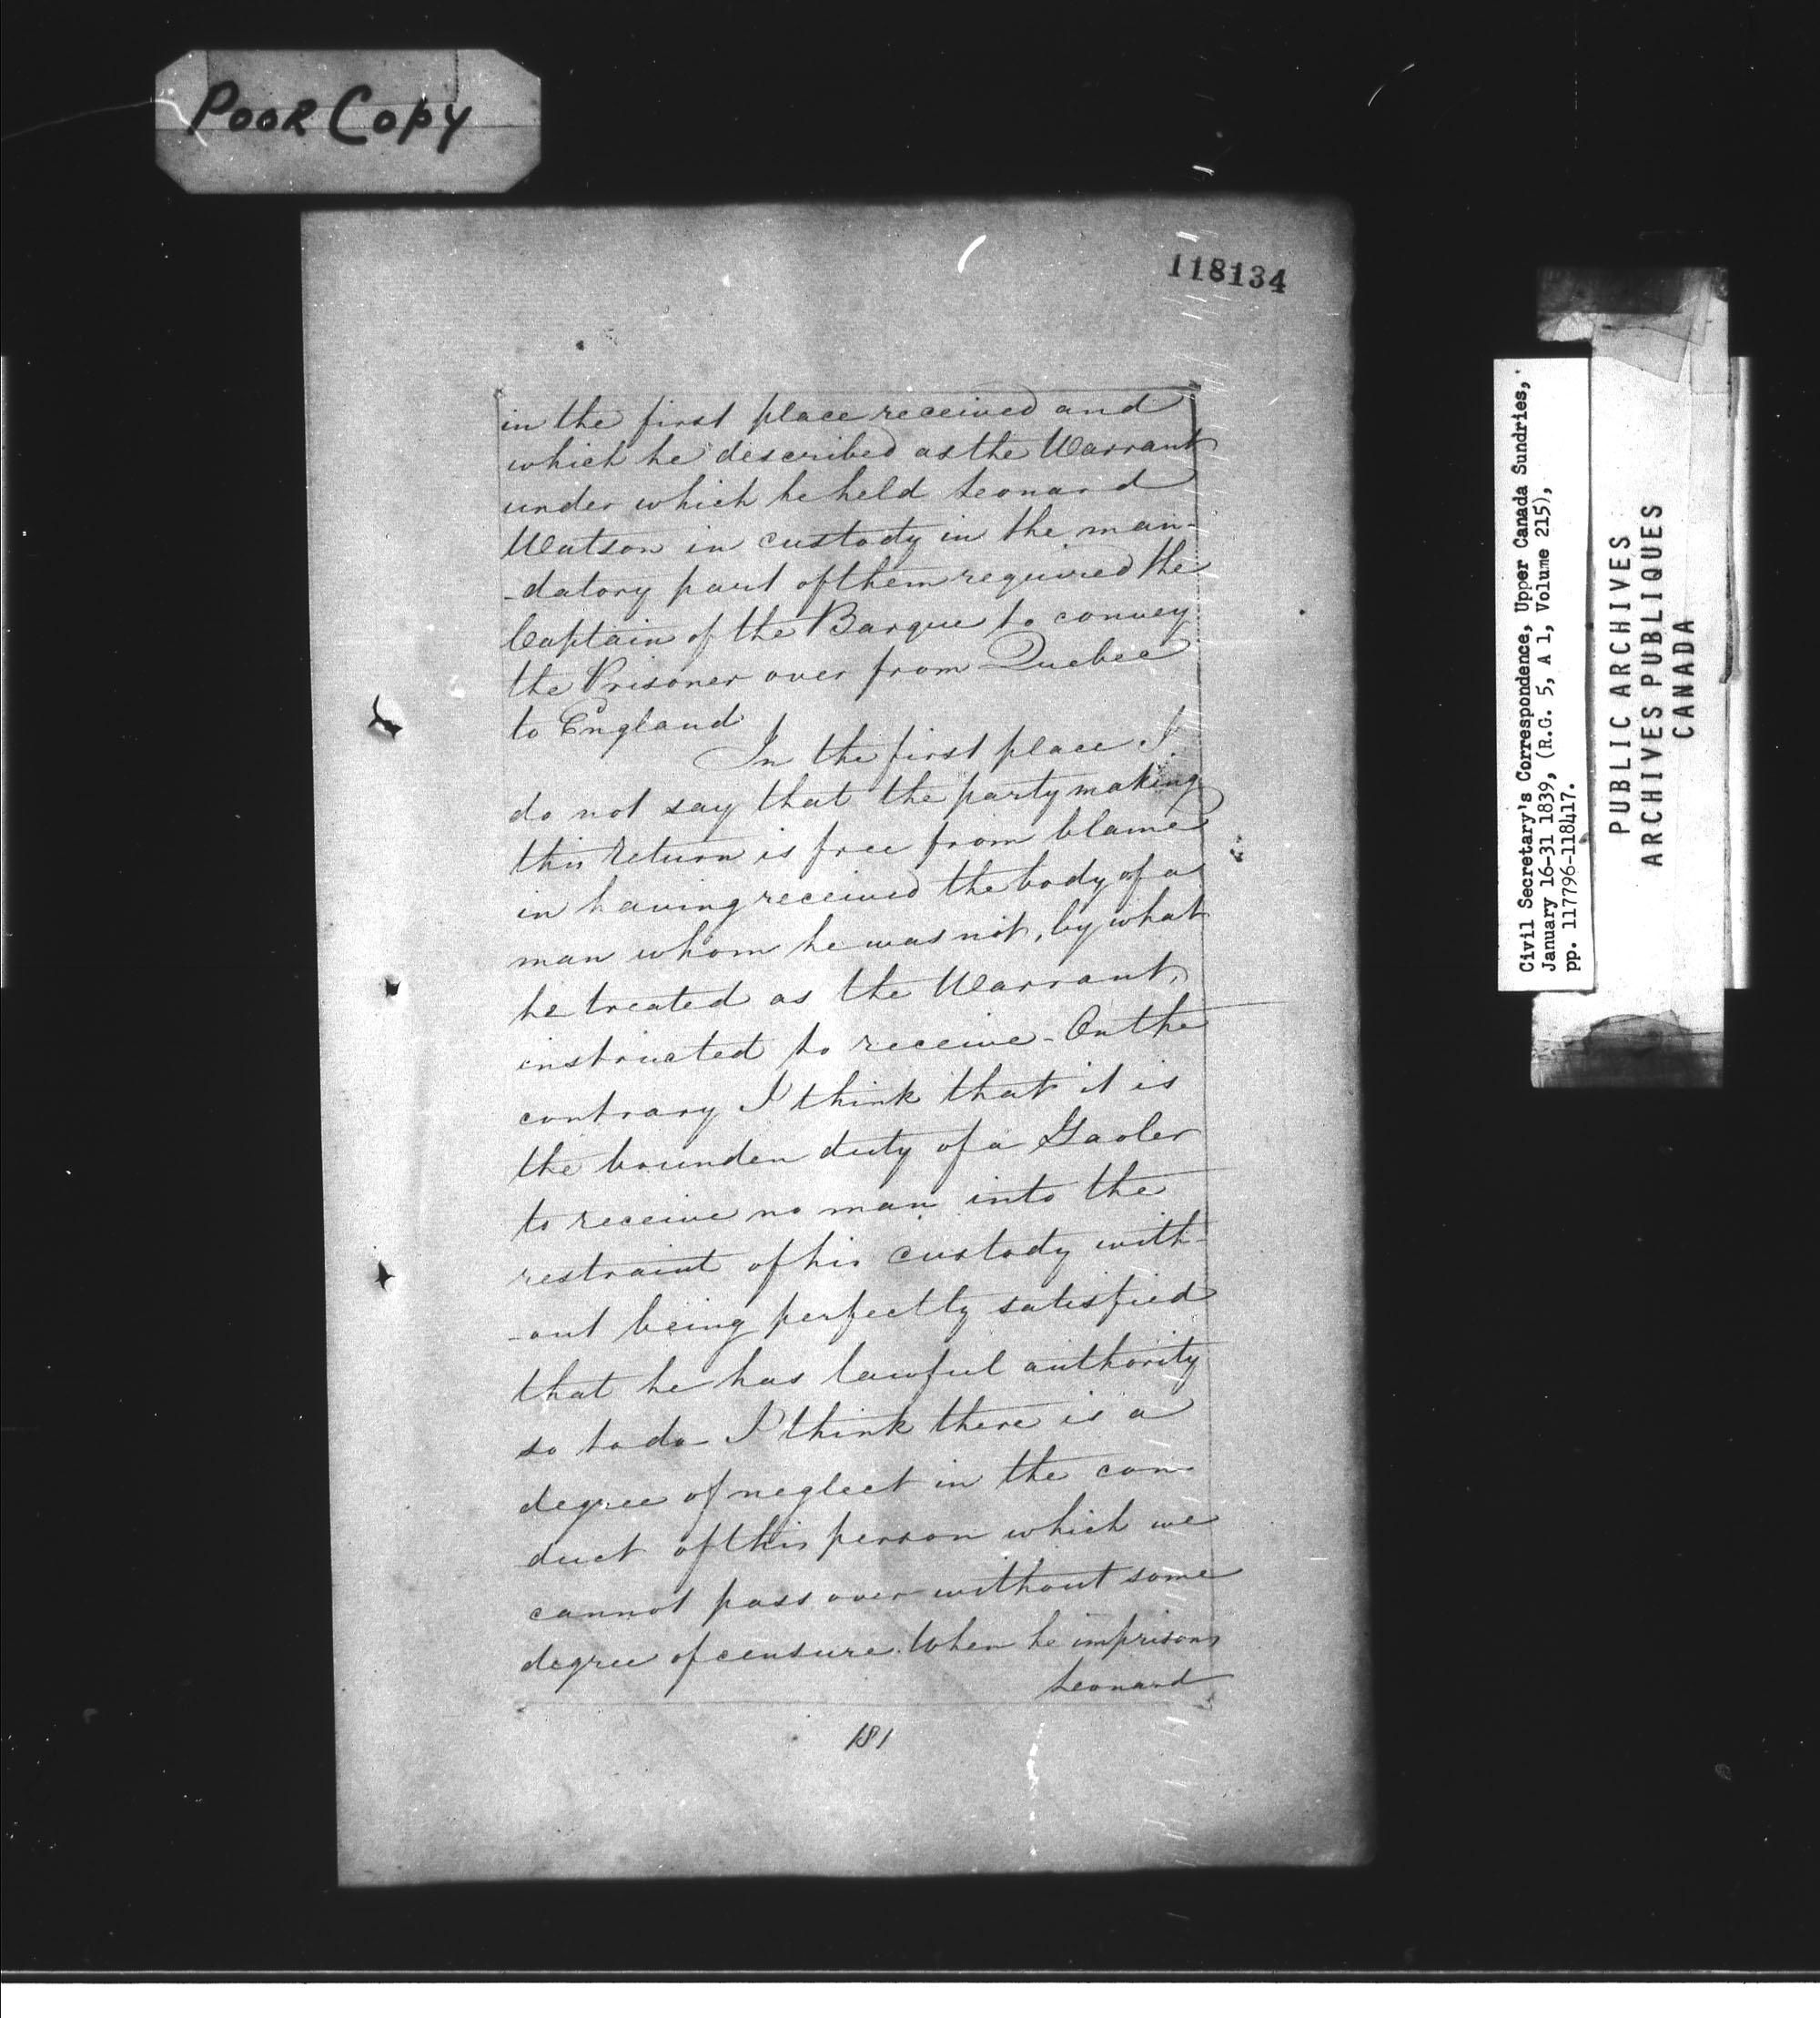 Poor Copy
118134
in the first place received and
which he described as the Warrant
under which he held Leonard
Watson in custody in the man-
-datory part of them required the
Captain of the Barque to convey
the Prisoner over from Quebec
to England
In the first place I
do not say that the party making
this return is free from blame
in having received the body of a
man whom he was not, by what
he treated as the Warrant,
instructed to receive - On the
contrary I think that it is
the bounden duty of a Gaoler
to receive no man into the
restraint of his custody with-
-out being perfectly satisfied
that he has lawful authority
so to do - I think there is a
degree of neglect in the con-
duct of this person which we
cannot pass over without some
degree of censure. When he imprisons
Leonard
181
Civil Secretary's Correspondence, Upper Canada Sundries,
January 16-31 1839, (R.G. 5, A 1, Volume 215),
pp. 117796-118417.
PUBLIC ARCHIVES
ARCHIVES PUBLIQUES
CANADA